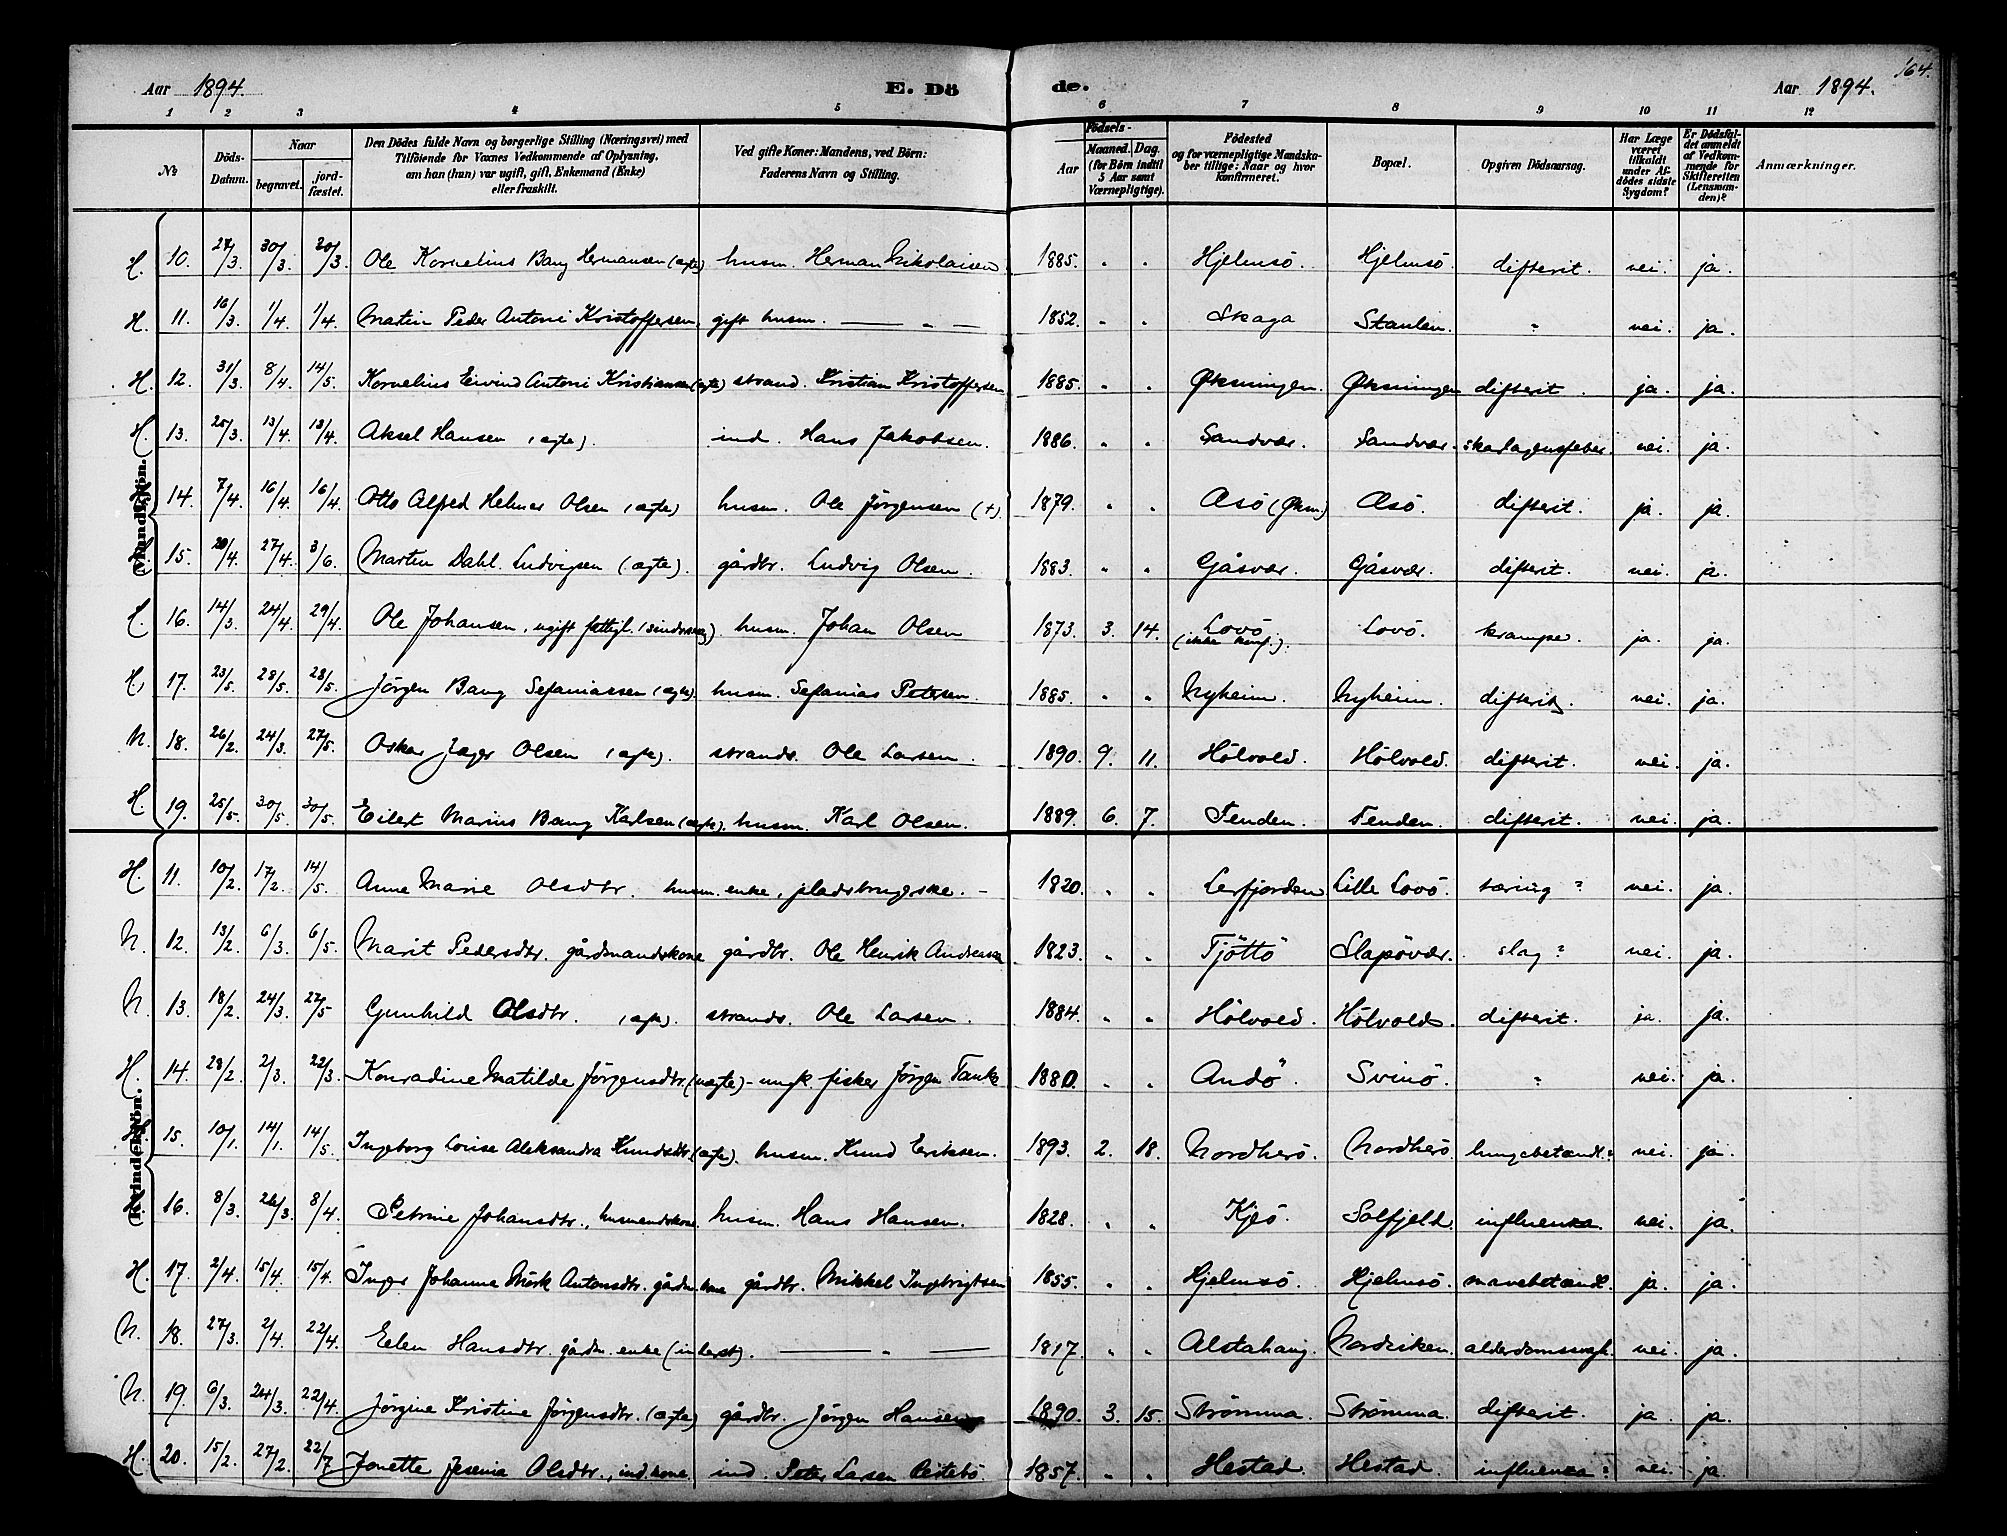 164.
Aar 1894. E. Dö de. Aar 1894.
1 2 3 4 5 6 7 8 9 10 11 12
№ Döds-Datum. Naar begravet. jord-fæstet. Den Dödes fulde Navn og borgerlige Stilling (Næringsvei) med Tilföiende for Voxnes Vedkommende af Oplysning, om han (hun) var ugift, gift, Enkemand (Enke) eller fraskilt. Ved gifte Koner: Mandens, ved Börn: Faderens Navn og Stilling. Födsels- Aar Maaned. Dag. (for Börn indtil 5 Aar samt Værnepligtige). Födested og for værnepligtige Mandskaber tillige: Naar og hvor konfirmeret. Bopæl. Opgiven Dödsaarsag. Har Læge været tilkaldt under Afdödes sidste Sygdom? Er Dödsfaldet anmeldt af Vedkommende for Skifteretten (Lensmanden)? Anmærkninger.
Mandkjön.
H. 10. 27/3. 30/3. 30/3. Ole Kornelius Bang Hermansen (ægte) husm. Herman Nikolaisen 1885. " " Hjelmsö. Hjelmsö. difterit. nei. ja.
H. 11. 16/3. 1/4. 1/4. Martin Peder Antoni Kristoffersen, gift husm. — " — 1852. " " Skaga Staulen. " nei. ja.
H. 12. 31/3. 8/4. 14/5. Kornelius Eivind Antoni Kristiansen (ægte) strand. Kristian Kristoffersen 1885. " " Øksningen. Øksningen difterit. ja. ja.
H. 13. 25/3. 13/4. 13/4. Aksel Hansen (ægte). ind. Hans Jakobsen. 1886. " " Sandvær. Sandvær. skarlagensfeber. nei. ja.
14. 7/4. 16/4. 16/4. Otto Alfred Helmer Olsen (ægte) husm. Ole Jörgensen (+). 1879. " " Æsö (Øksn) Æsö. difterit. ja. ja.
15. 20/4. 27/4. 3/6. Martin Dahl Ludvigsen (ægte). gårdbr. Ludvig Olsen. 1883. " " Gåsvær. Gåsvær. difterit. nei. ja.
H. 16. 14/3. 24/4. 29/4. Ole Johansen, ugift fattigl. (sindssvag) husm. Johan Olsen 1873. 3. 14. Lovö (ikke konf.). Lovö. krampe. ja. ja.
H. 17. 23/5. 28/5. 28/5. Jörgen Bang Sefaniassen (ægte) husm. Sefanias Petersen. 1885. " " Nyheim. Nyheim. difterit. nei. ja.
N. 18. 26/2. 24/3. 27/5. Oskar Jager Olsen (ægte). strands. Ole Larsen. 1890. 9. 11. Hölvold. Hölvold. difterit. nei. ja.
H. 19. 25/5. 30/5. 30/5. Eilert Marius Bang Karlsen (ægte). husm. Karl Olsen. 1889. 6. 7. Tenden. Tenden. difterit. nei. ja.
Kvindekjön.
H. 11. 10/2. 17/2. 14/5. Anne Marie Olsdtr. husm. enke, pladsbrugerske. - 1820. " " Lerfjorden Lille Lovö. tæring ? nei. ja.
N. 12. 13/2. 6/3. 6/5. Marit Pedersdtr. gårdmandskone gårdbr. Ole Henrik Andreassen 1823. " " Tjöttö Slapövær. slag ? nei. ja.
N. 13. 18/2. 24/3. 27/5 Gunhild Olsdtr. (ægte). strands. Ole Larsen. 1884. " " Hölvold. Hölvold. difterit. ja. ja.
H. 14. 28/2. 2/3. 22/3. Konradine Matilde Jörgensdtr. (uægte) - ungk. fisker Jörgen Tank 1880. " " Andö. Svinö. " nei. ja.
15. 10/1. 14/1. 14/5. Ingeborg Lovise Aleksandra Knudsdtr. (ægte). husm. Knud Eriksen. 1893. 2. 18. Nordherö. Nordherö. lungebetændl. nei. ja.
16. 8/3. 26/3. 8/4. Petrine Johansdtr., husmandskone husm. Hans Hansen. 1828. " " Kjeö. Solfjeld. influenza. nei. ja.
H. 17. 2/4. 15/4. 15/4. Inger Johanna Mörk Antonsdtr. gårdm. kone gårdbr. Mikkel Ingebrigtsen 1855. " " Hjelmsö. Hjelmsö. mavebetændl. ja. ja.
N. 18. 27/3. 2/4. 22/4. Ellen Hansdtr. gårdm. enke (inderst). — " — 1817. " " Alstahaug. Nordviken. alderdomssvagh. nei. ja.
N. 19. 6/3. 24/3. 22/4. Jörgine Kristine Jörgensdtr. (ægte) gårdbr. Jörgen Hansen 1890. 3. 15. Strömma. Strömma. difterit. ja. ja.
H. 20. 15/2. 27/2. 22/7 Jonette Jesenia Olsdtr., ind. kone. ind. Peter Larsen 1857. " " Hestad. Hestad. influenza ? nei. ja.